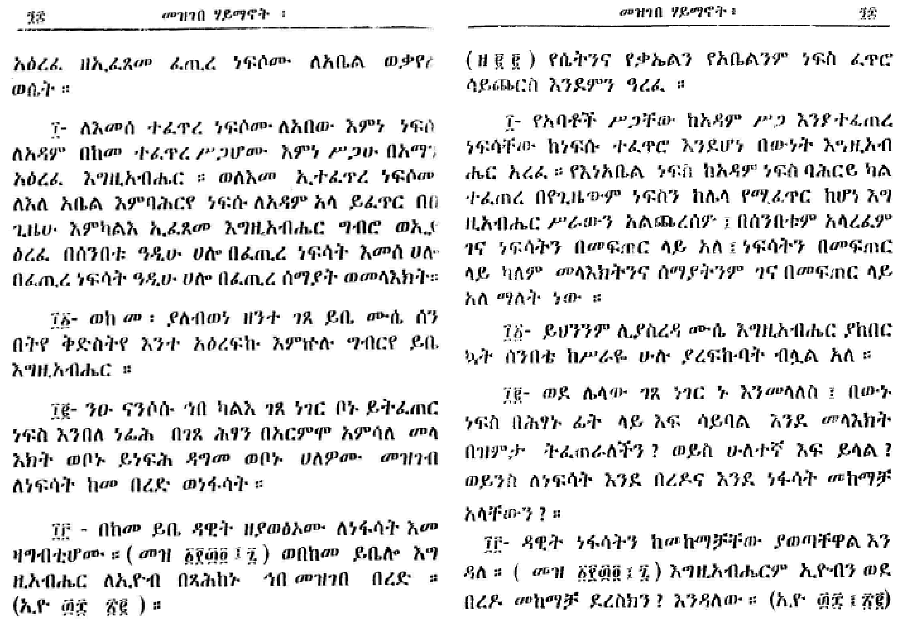 ፸፰ መዝገበ ሃይማኖት ፡
አዕረፈ ዘኢፈጸመ ፈጢረ ነፍሶሙ ለአቤል ወቃየ
ወሴት ።
፲- ለእመሰ ተፈጥረ ነፍሶሙ ለአበው እምነ ነፍሰ
ለአዳም በከመ ተፈጥረ ሥጋሆሙ እምነ ሥጋሁ በአማ
አዕረፈ እግዚአብሔር ። ወለእመ ኢተፈጥረ ነፍሶሙ
ለእለ አቤል እምባሕርየ ነፍሱ ለአዳም አላ ይፈጥር
ጊዜሁ እምካልእ ኢፈጸመ እግዚአብሔር ግብሮ
ዕረፈ በሰንበቱ ዓዲሁ ሀሎ በፈጢረ ነፍሳት እመሰ ሀሎ
በፈጢረ ነፍሳት ዓዲሁ ሀሎ በፈጢረ ሰማያት ወመላእክት።
፲፩- ወከ መ ፡ ያለብወነ ዘንተ ገጸ ይቤ ሙሴ ሰን
በትየ ቅድስትየ እንተ አዕረፍኩ እምኵሉ ግብርየ ይቤ
እግዚአብሔር ።
፲፪- ንሁ ናንሶሱ ኀበ ካልእ ገጸ ነገር ቦኑ ይትፈጠር
ነፍስ እንበለ ነፊሕ በገጸ ሕፃን በአርምሞ አምሳለ መላ
እክት ወቦኑ ይነፍሕ ዳግመ ወቦኑ ሀለዎሙ መዝገብ
ለነፍሳት ከመ በረድ ወነፋሳት ።
፲፫ - በከመ ይቤ ዳዊት ዘያወፅኦሙ ለነፋሳት እመ
ዛግብቲሆሙ ። ( መዝ ፩፻፴፬ ፤ ፯ ) ወበከመ ይቤሎ እግ
ዚአብሔር ለኢዮብ በጻሕከኑ ኀበ መዝገበ በረድ ።
(ኢዮ ፴፰ ፳፪ ) ።
መዝገበ ሃይማኖት ፡ ፸፰
( ዘ ፪ ፪ ) የሴትንና የቃኤልን የአቤልንም ነፍስ ፈጥሮ
ሳይጨርስ እንደምን ዓረፈ ።
፲- የአባቶች ሥጋቸው ከአዳም ሥጋ እንደተፈጠረ
ነፍሳቸው ከነፍሱ ተፈጥሮ እንደሆነ በውነት እግዚአብ
ሔር አረፈ ። የእነአቤል ነፍስ ከአዳም ነፍስ ባሕርይ ካል
ተፈጠረ በየጊዜውም ነፍስን ከሌላ የሚፈጥር ከሆነ እግ
ዚአብሔር ሥራውን አልጨረሰም ፤ በሰንበቱም አላረፈም
ገና ነፍሳትን በመፍጠር ላይ አለ ፤ ነፍሳትን በመፍጠር
ላይ ካለም መላእክትንና ሰማያትንም ገና በመፍጠር ላይ
አለ ማለት ነው ።
፲፩- ይህንንም ሊያስረዳ ሙሴ እግዚአብሔር ያከበር
ኳት ሰንበቴ ከሥራዬ ሁሉ ያረፍኩባት ብሏል አለ ።
፲፪- ወደ ሌላው ገጸ ነገር ኑ እንመላለስ ፤ በውኑ
ነፍስ በሕፃኑ ፊት ላይ እፍ ሳይባል እንደ መላእክት
በዝምታ ትፈጠራለችን ? ወይስ ሁለተኛ እፍ ይላል ?
ወይንስ ለነፍሳት እንደ በረዶና እንደ ነፋሳት መከማቻ
አላቸውን ? ።
፲፫- ዳዊት ነፋሳትን ከመከማቻቸው ያወጣቸዋል እን
ዳለ ። ( መዝ ፩፻፴፬ ፤ ፯ ) እግዚአብሔርም ኢዮብን ወደ
በረዶ መከማቻ ደረስክን ? እንዳለው ። (ኢዮ ፴፰ ፤ ፳፪)